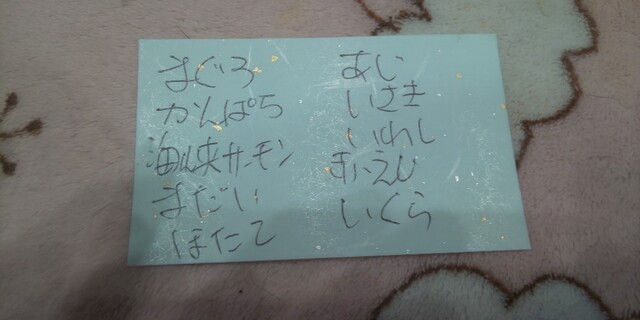 まぐろ
かんぱち
海峡サーモン
まだい
ほたて
あじ
いさき
いわし
いくら